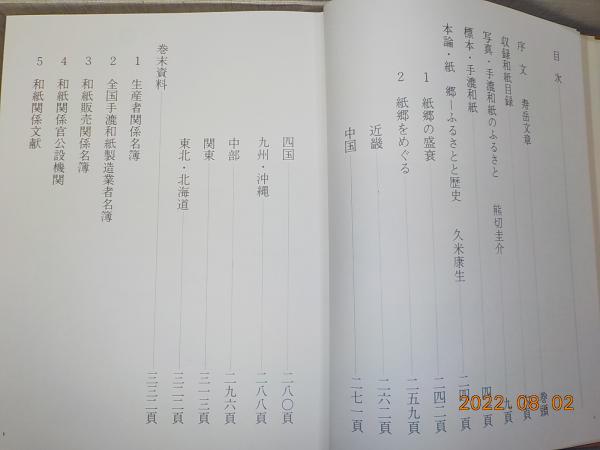 目次
序文 寿岳文章 巻頭
収録和紙目録 頁
写真・手漉和紙のふるさと 熊切圭介 九頁
標本・手漉和紙 四 頁
本論・紙郷ーふるさとと歴史 久米康生 二四 頁
1 紙郷の盛衰 二四二頁
2 紙郷をめぐる 二五九頁
近畿 二六二頁
中国 二七一頁
四国 二八〇頁
九州・沖縄 二八八頁
中部 二九六頁
関東 三一三頁
東北・北海道 三二二頁
巻末資料 三三二頁
1 生産者関係名簿
2 全国手漉和紙製造業者名簿
3 和紙販売関係名簿
4 和紙関係官公設機関
5 和紙関係文献
2022 08 02